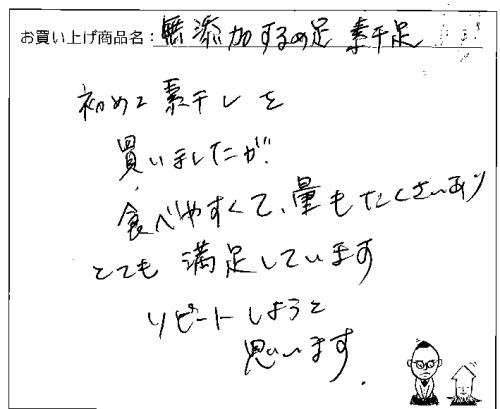 お買い上げ商品名：無添加するめ足 素干足
初めて素干しを
買いましたが、
食べやすくて、量もたくさんあり
とても満足しています
リピートしようと
思います.